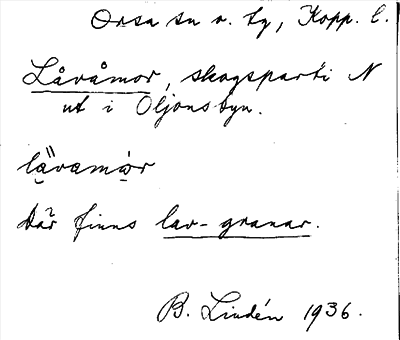 Orsa sn o. tg, Kopp. l.
Låvåmor, skogsparti N
ut i Oljonsbyn.
lävamo̱r
Där finns lav-granar.
B. Lindén 1936.